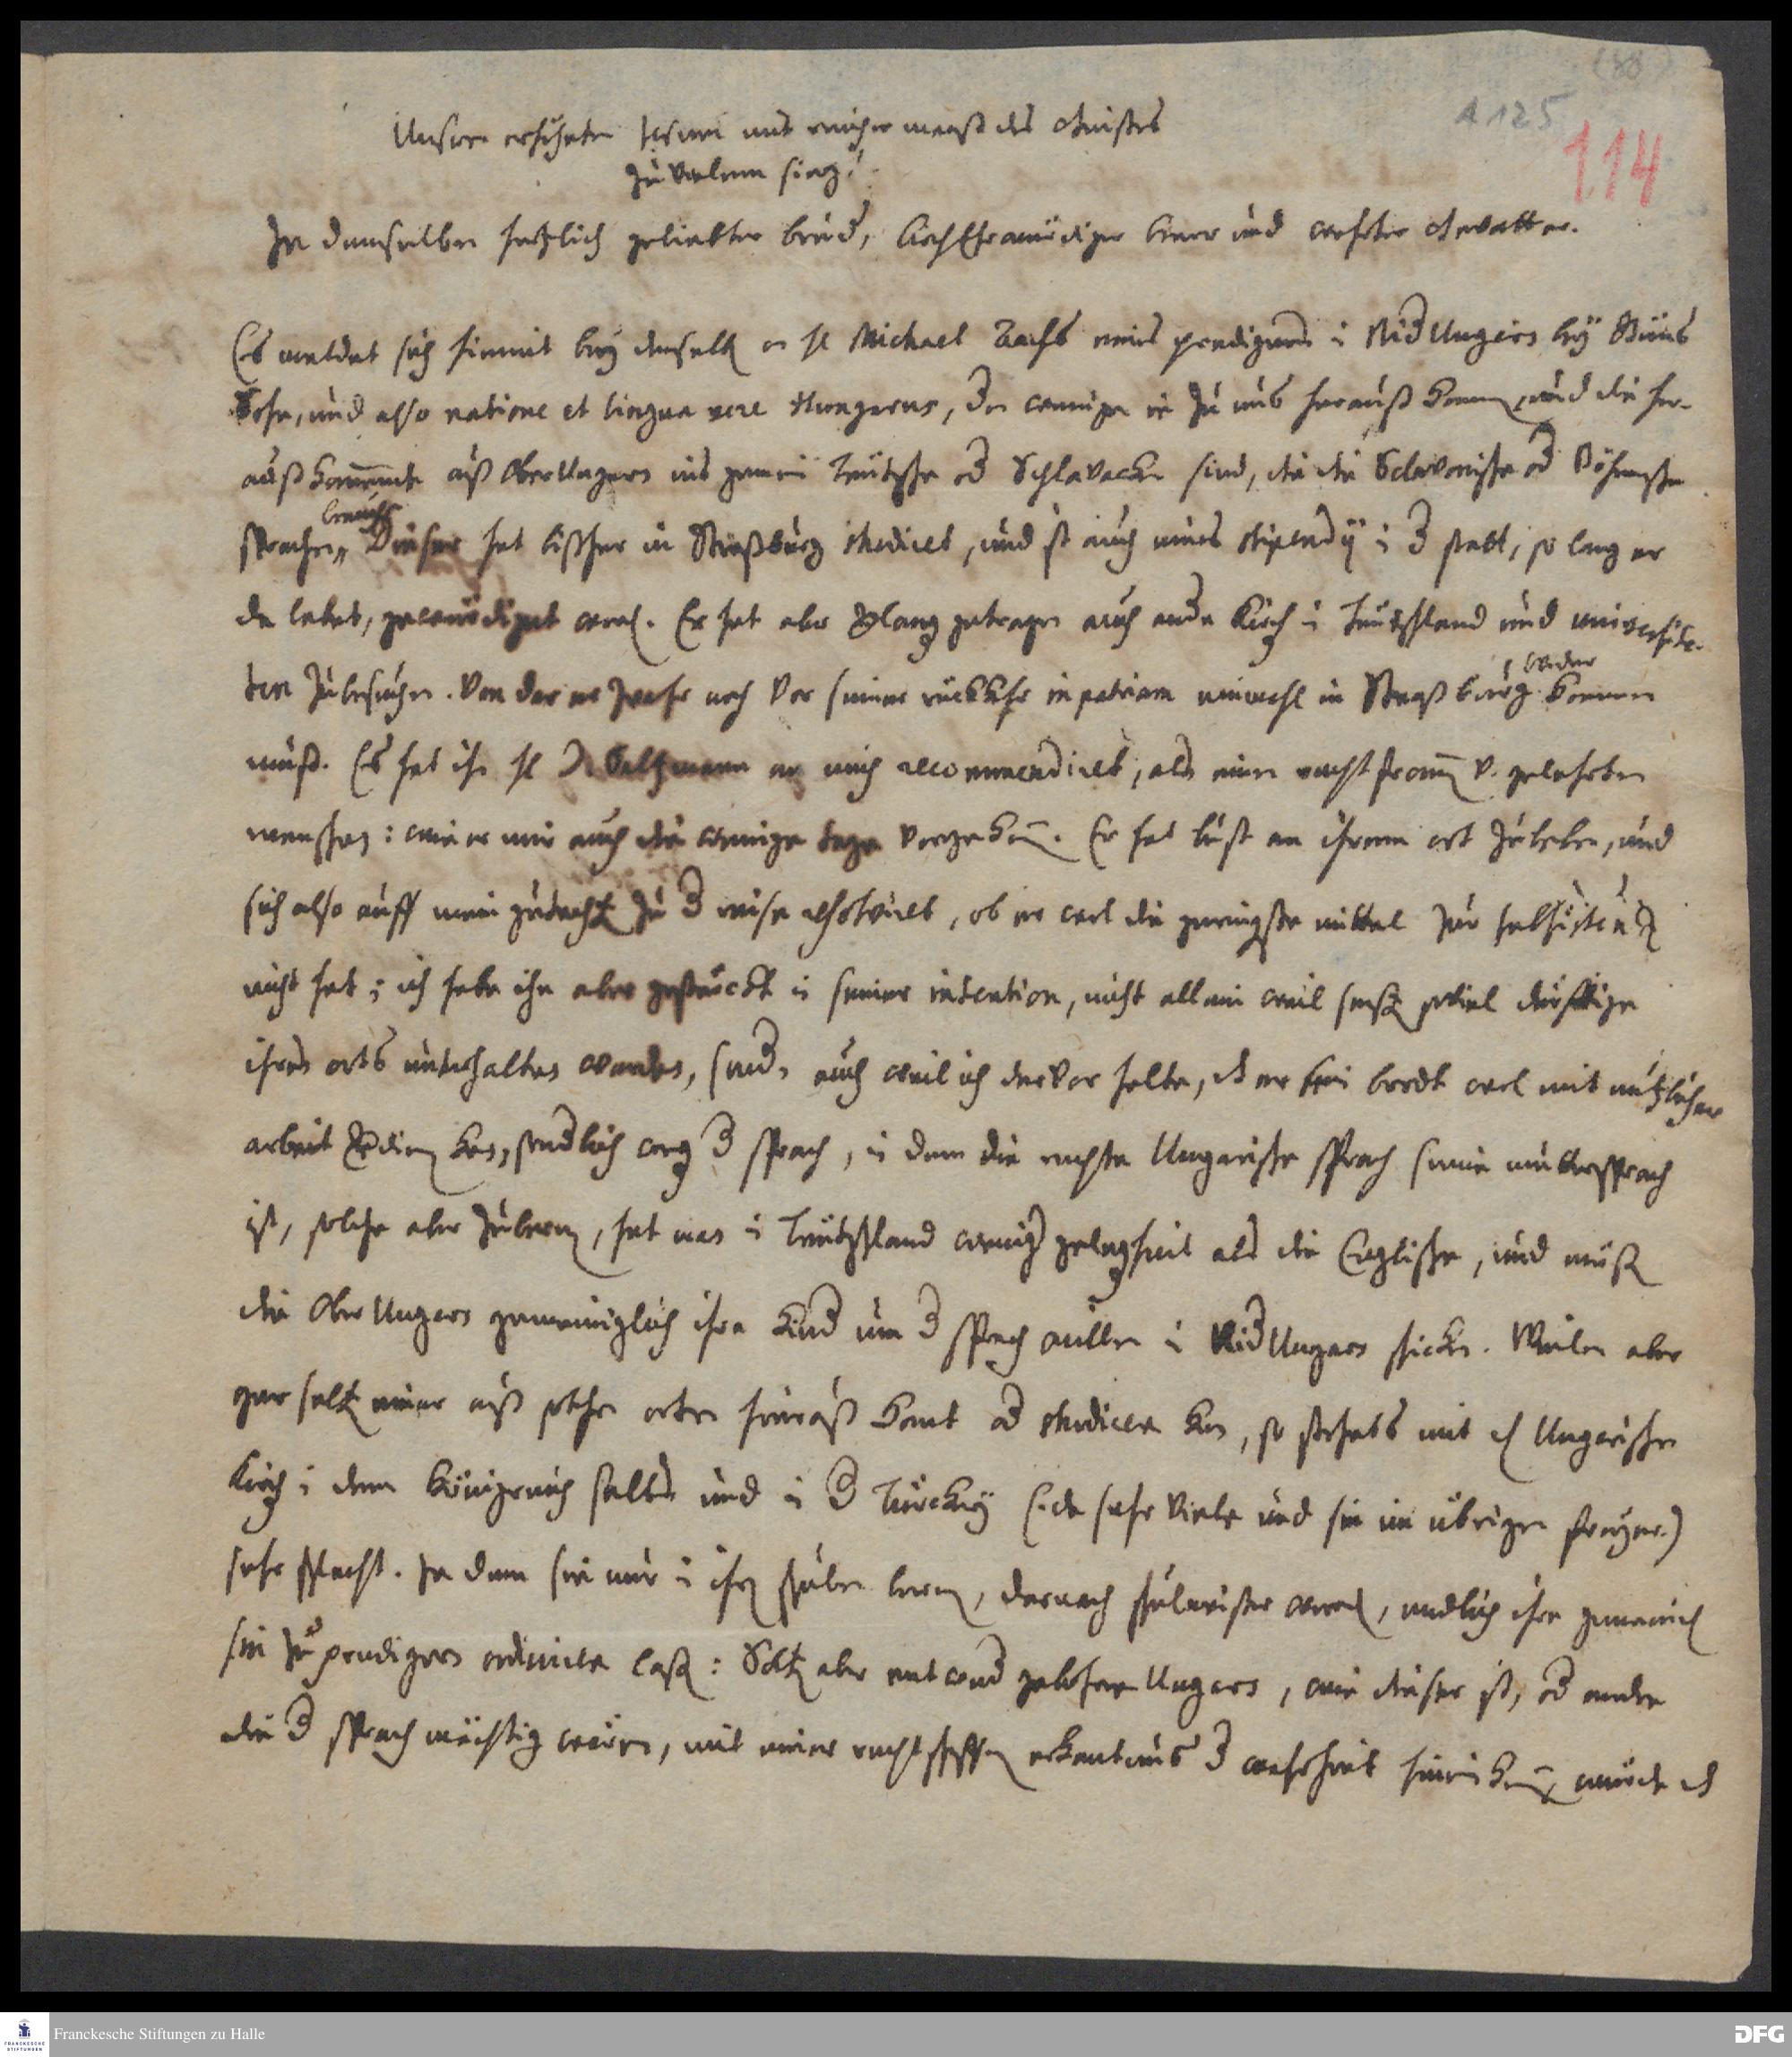 (88)
A 125
114
Unsern erhöheten Jesum mit reicher maaß des Geistes
zuvorum sieg!
In demselben hertzlich geliebter brud, HochEhrwürdiger Herr und werther Gevatter.
Es meldet sich hiemit bey demselben H. Michael eines predigers i NidUngern bey Güns
Sohn, und also natione et lingua vere Hungarus, der wenige je zu uns herauß kommen, und die her-
auß kommende auß OberUngern ins gemein Teutsche od Schlavacken sind, die die Sclavonische od Böhmische
sprache brauchen. Dieser hat bißher in Straßburg studiret, und ist auch eines stipendij i d statt, so lang er
da lebet, gewürdiget word. Er hat aber verlang getragen auch andere Kirch i Teutschland und universitä-
ten zubesuchen. Von dar er zwahr noch vor seiner rückkehr in patriam einmahl in Straßburg wieder kommen
muß. Es hat ihn H D. an mich recommendiret, als einen recht fromm v. gelehrten
menschen: wie er mir auch die wenige tage vorgekom. Er hat lust an ihrem ort zuleben, und
sich also auff mein gutacht zu d reise resolviret, ob er wol die geringste mittel zur subsistentz
nicht hat; ich habe ihn aber gestärckt i seiner intention, nicht allein weil sonst soviel dürfftige
ihres orts unterhalten werden, sond. auch weil ich davor halte, d er sein brodt wol mit nützlicher
arbeit verdien kan, sonderlich weg d sprach, i dem die rechte Ungarische sprach seine muttersprach
ist, solche aber zulern, hat man i Teutschland weniger gelegheit als die Englische, und müß
die OberUngern gemeiniglich ihre Kind um d sprach willen i NidUngern schicken. Weilen aber
gar selt einer auß solchen orten herauß komt od studieren kan, so stehets mit d Ungarischen
Kirch i dem Königreich selbst und i d Türckey (da sehr viele und sie im übrigen freyer)
sehr schlecht. In dem sie nur i ihren schulen lernen, darnach schulmeister werd, endlich ihre gemeind
sie zu predigern ordiniren laß: Solt aber entwed gebohrne Ungern, wie dieser ist, od andre
die d sprach mächtig wären, mit einer rechtschaffen erkantnus d wahrheit hinein kom, würde es
Franckesche Stiftungen zu Halle
DFG